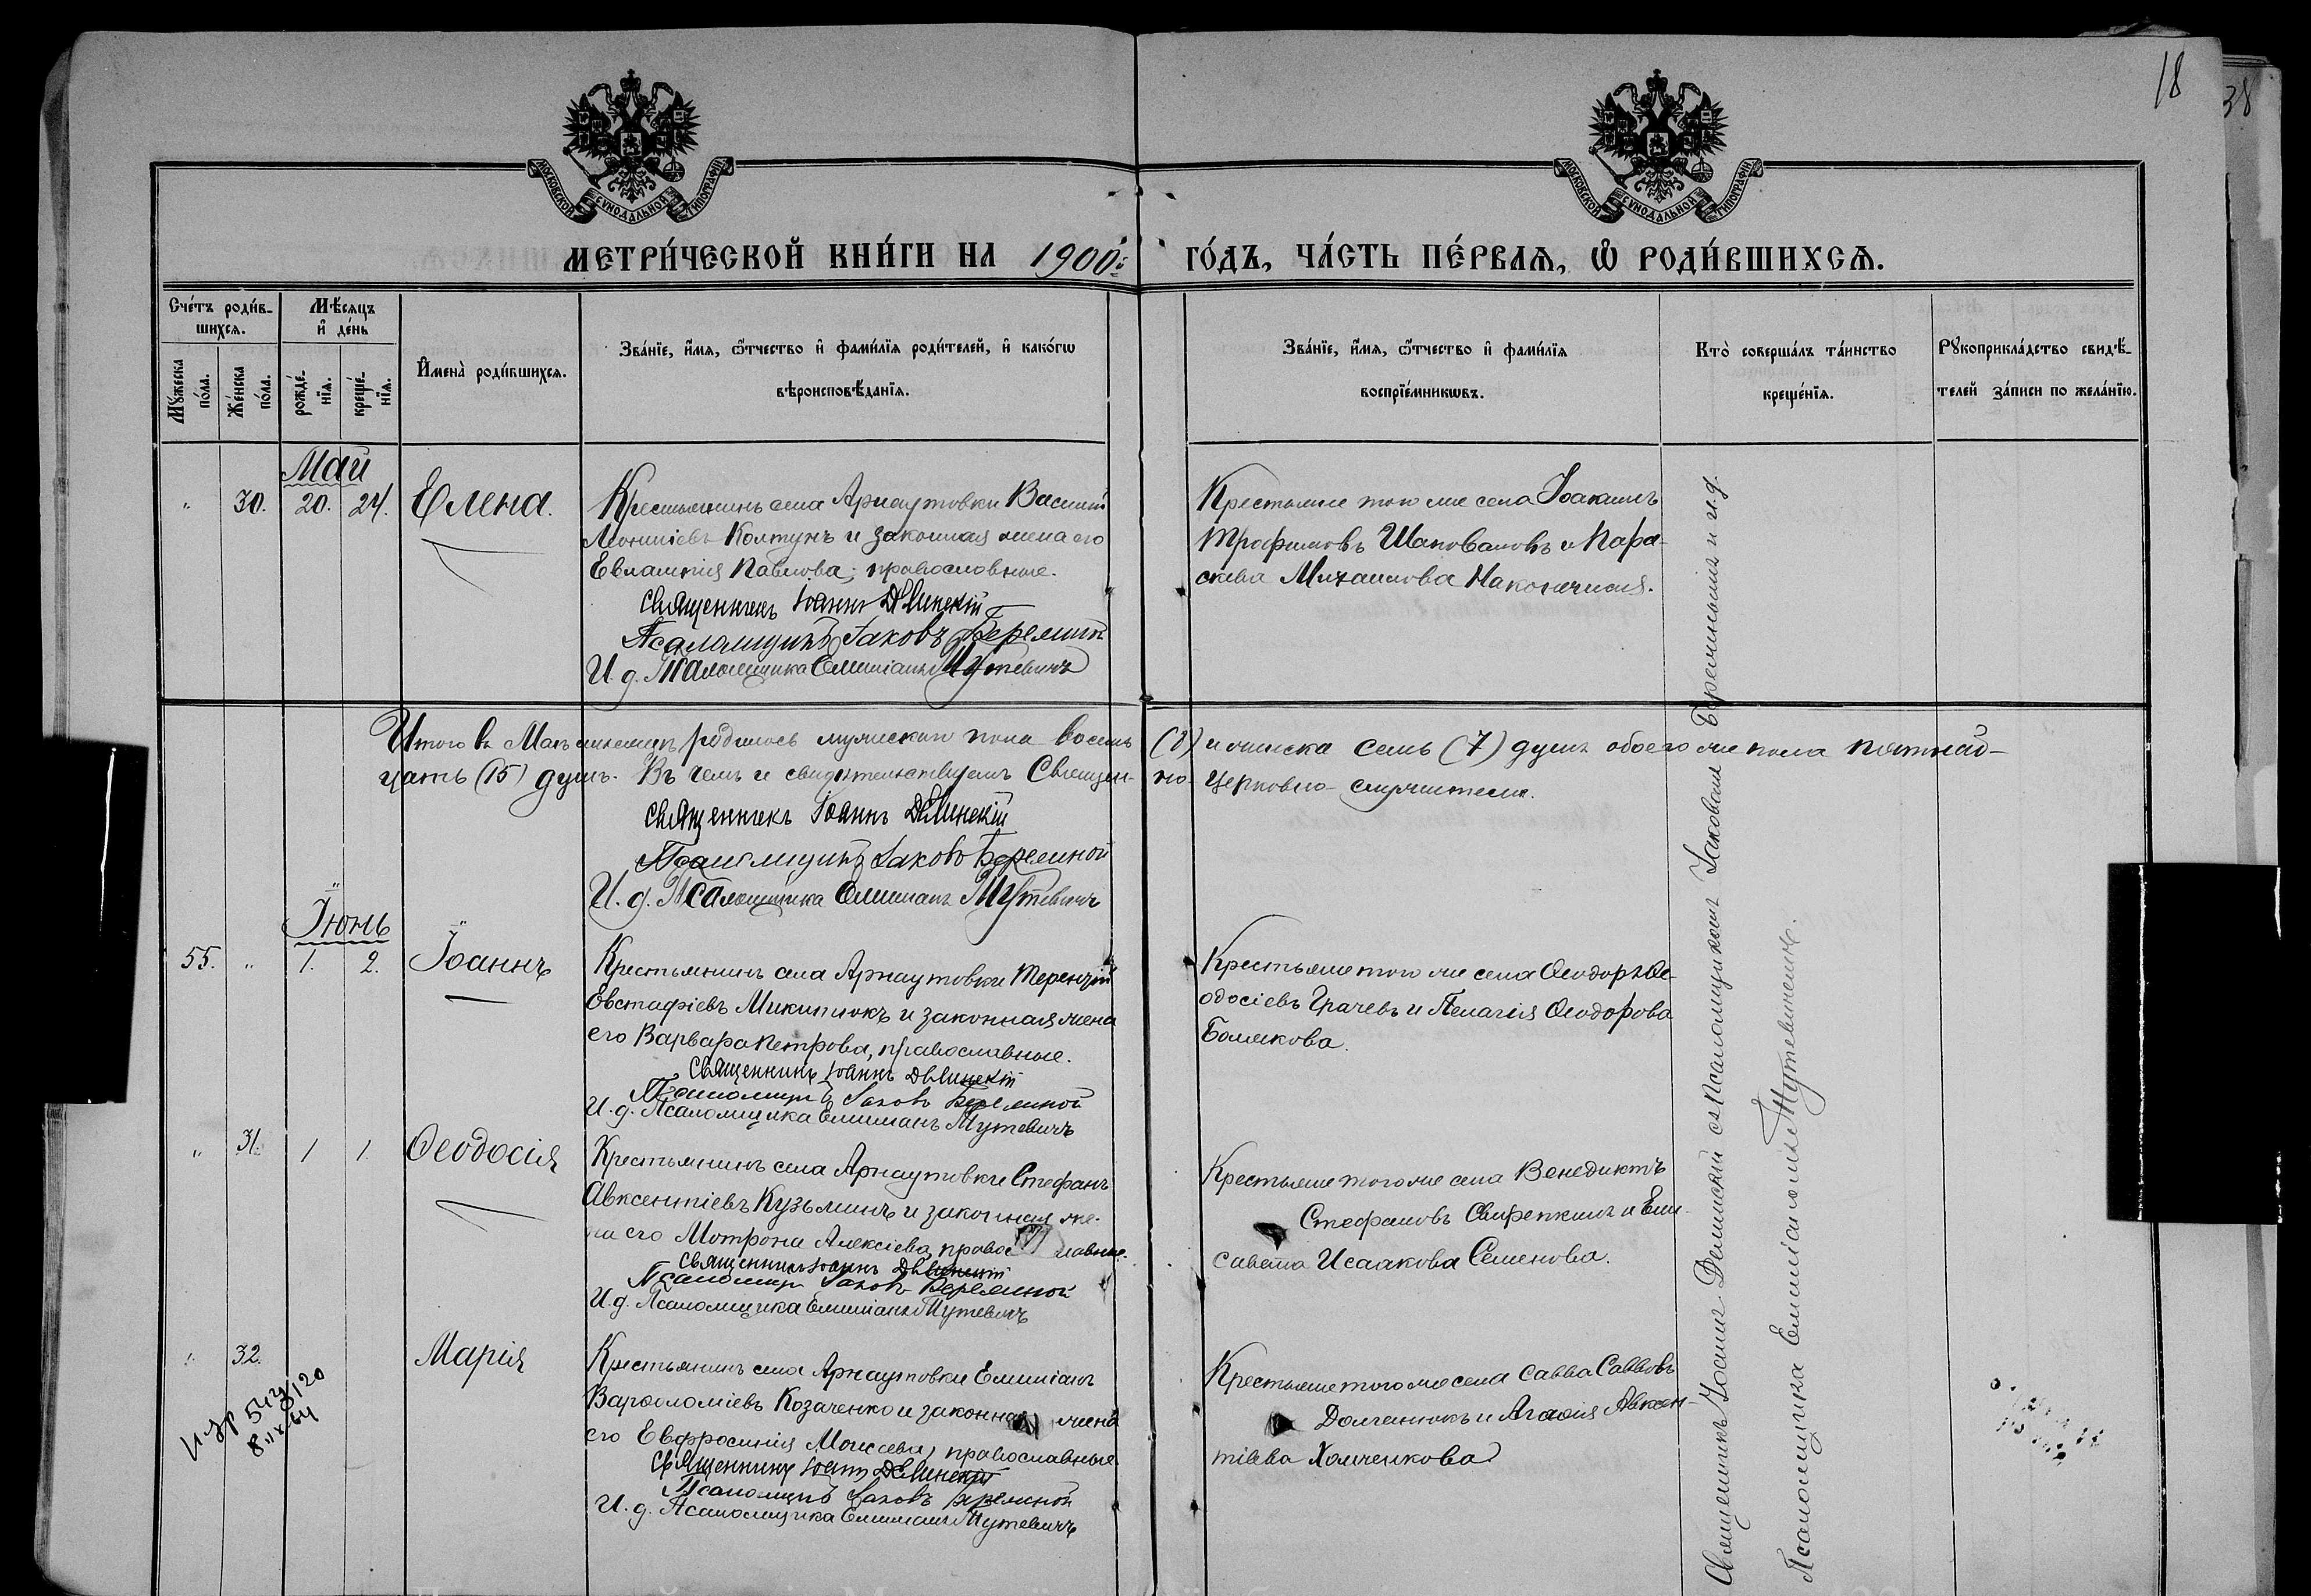 18
38
МОСКОВСКОЙ СѴНОДАЛЬНОЙ ТИПОГРАФІИ
МОСКОВСКОЙ СѴНОДАЛЬНОЙ ТИПОГРАФІИ
МЕТРИ́ЧЕСКОЙ КНИ́ГИ НА 1900й ГО́ДЪ, ЧА́СТЬ ПЕ́РВАѦ, Ѡ РОДИ́ВШИХСѦ.
Сче́тъ роди́в-
шихсѧ.
Мꙋ́жеска по́ла.
Же́нска по́ла.
Мѣ́сѧцъ
и҆ де́нь
рожде́-
нїѧ.
креще́-
нїѧ.
И҆мена̀ роди́вшихсѧ.
Зва́нїе, и҆́мѧ, ѻ҆́тчество и҆ фами́лїѧ роди́телей, и҆ како́гѡ
вѣроисповѣ́данїѧ.
Зва́нїе, и҆́мѧ, ѻ҆́тчество и҆ фами́лїѧ
воспрїе́мникѡвъ.
Кто̀ соверша́лъ та́инство
креще́нїѧ.
Рꙋкоприкла́дство свидѣ́-
телей за́писи по жела́нїю.
Май
" 30. 20. 24. Елена.
Крестьянинъ села Арнаутовки Василій
Леонтіевъ Колтунъ и законная жена его
Евлампія Павлова; православные.
Священникъ Іоаннъ Дѣлинскій
Псаломщикъ Іаковъ Беременой
И. д. Псаломщика Емиліанъ Мутевичъ
Крестьяне того же села Іоакимъ
Трофимовъ Шаповаловъ и Пара-
скева Михаилова Наконечная.
Итого въ Маѣ мѣсяцѣ родилось мужескаго пола восемь (8) и женска семь (7) душъ обоего же пола пятнад-
цать (15) душъ. Въ чемъ и свидѣтельствуемъ Священно-церковно-служители.
Священникъ Іоаннъ Дѣлинскій
Псаломщикъ Іаковъ Беременой
И. д. Псаломщика Емиліанъ Мутевичъ
Іюнь
55. " 1. 2. Іоаннъ
Крестьянинъ села Арнаутовки Терентій
Евстафіевъ Микитюкъ и законная жена
его Варвара Петрова, православные.
Священникъ Іоаннъ Дѣлинскій
Псаломщикъ Іаковъ Беременой
И. д. Псаломщика Емиліанъ Мутевичъ
Крестьяне того же села Ѳеодоръ Ѳе-
одосіевъ Грачевъ и Пелагія Ѳеодорова
Болякова.
" 31. 1 1. Ѳеодосія
Крестьянинъ села Арнаутовки Стефанъ
Авксентіевъ Кузьминъ и законная же-
на его Мотрона Алексіева, православные.
Священникъ Іоаннъ Дѣлинскій
Псаломщикъ Іаковъ Беременой
И. д. Псаломщика Емиліанъ Мутевичъ
Крестьяне того же села Венедиктъ
Стефановъ Свирепкинъ и Ели-
савета Исаакова Семенова.
" 32. Марія
Крестьянинъ села Арнаутовки Емиліанъ
Варѳоломіевъ Козаченко и законная жена
его Евфросинія Моисеева, православные
Священникъ Іоаннъ Дѣлинскій
Псаломщикъ Іаковъ Беременой
И. д. Псаломщика Емиліанъ Мутевичъ
Крестьяне того же села Савва Саввовъ
Долженюкъ и Агаѳія Авксен-
тіева Хомченкова
Священникъ Іоаннъ Дѣлинскій съ Псаломщикомъ Іаковомъ Беременымъ и и. д.
Псаломщика Емиліаномъ Мутевичемъ.